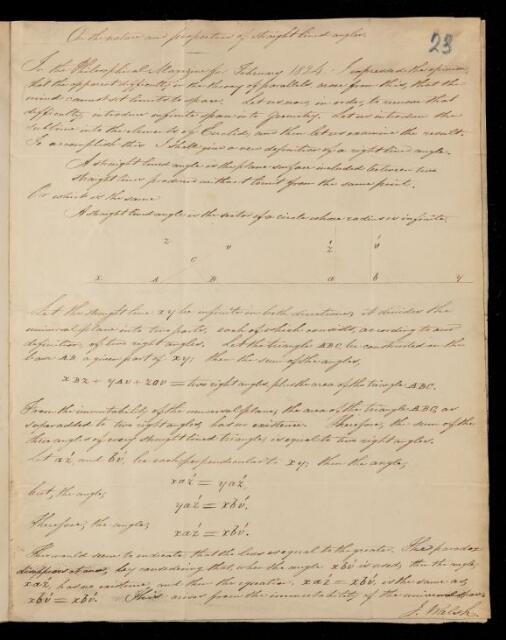 On the nature and properties of straight lined angles.
23
In the Philosophical Magazine for February 1824. I expressed the opinion,
that the apparent difficulty in the theory of parallels arose from this, that the
mind cannot set limits to space. Let us now, in order, to remove that
difficulty, introduce infinite space into Geometry. Let us introduce the
sublime into the elements of Euclid, and then let us examine the result.
To accomplish this I shall give a new definition of a right lined angle.
A straight lined angle is the plane surface included between two
straight lines produced without limit from the same point.
Or what is the same
A straight lined angle is the sector of a circle whose radius is infinite.
z v ź v́
C
x A B a b y
Let the straight line xy be infinite in both directions, it divides the
universal plane into two parts, each of which consists, according to our
definition, of two right angles. Let the triangle ABC, be constructed on the
base AB a given part of xy; then the sum of the angles,
xBz + yAv + zCv = two right angles plus the area of the triangle ABC.
From the immutability of the universal plane, the area of the triangle ABC, as
superadded to two right angles, has no existence. Therefore, the sum of the
three angles of every straight lined triangle, is equal to two right angles.
Let aź, and bv́, be each perpendicular to xy; then the angle,
xaź = yaź,
but, the angle,
yaź = xbv́.
Therefore, the angle,
xaź = xbv́.
This would seem to indicate, that the less is equal to the greater. The paradox
disappears at once, by considering that, when the angle xbv́ is used, then the angle,
xaź, has no existence, and then the equation, xaź = xbv́, is the same as,
xbv́ = xbv́. This arises from the immutability of the universal space.
J. Walsh